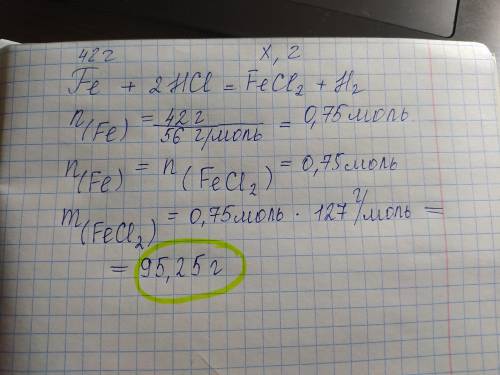 42 г х, г
Fe + 2HCl = FeCl₂ + H₂
n(Fe) = 42 г / 56 г/моль = 0,75 моль
n(Fe) = n(FeCl₂) = 0,75 моль
m(FeCl₂) = 0,75 моль · 127 г/моль =
= 95,25 г